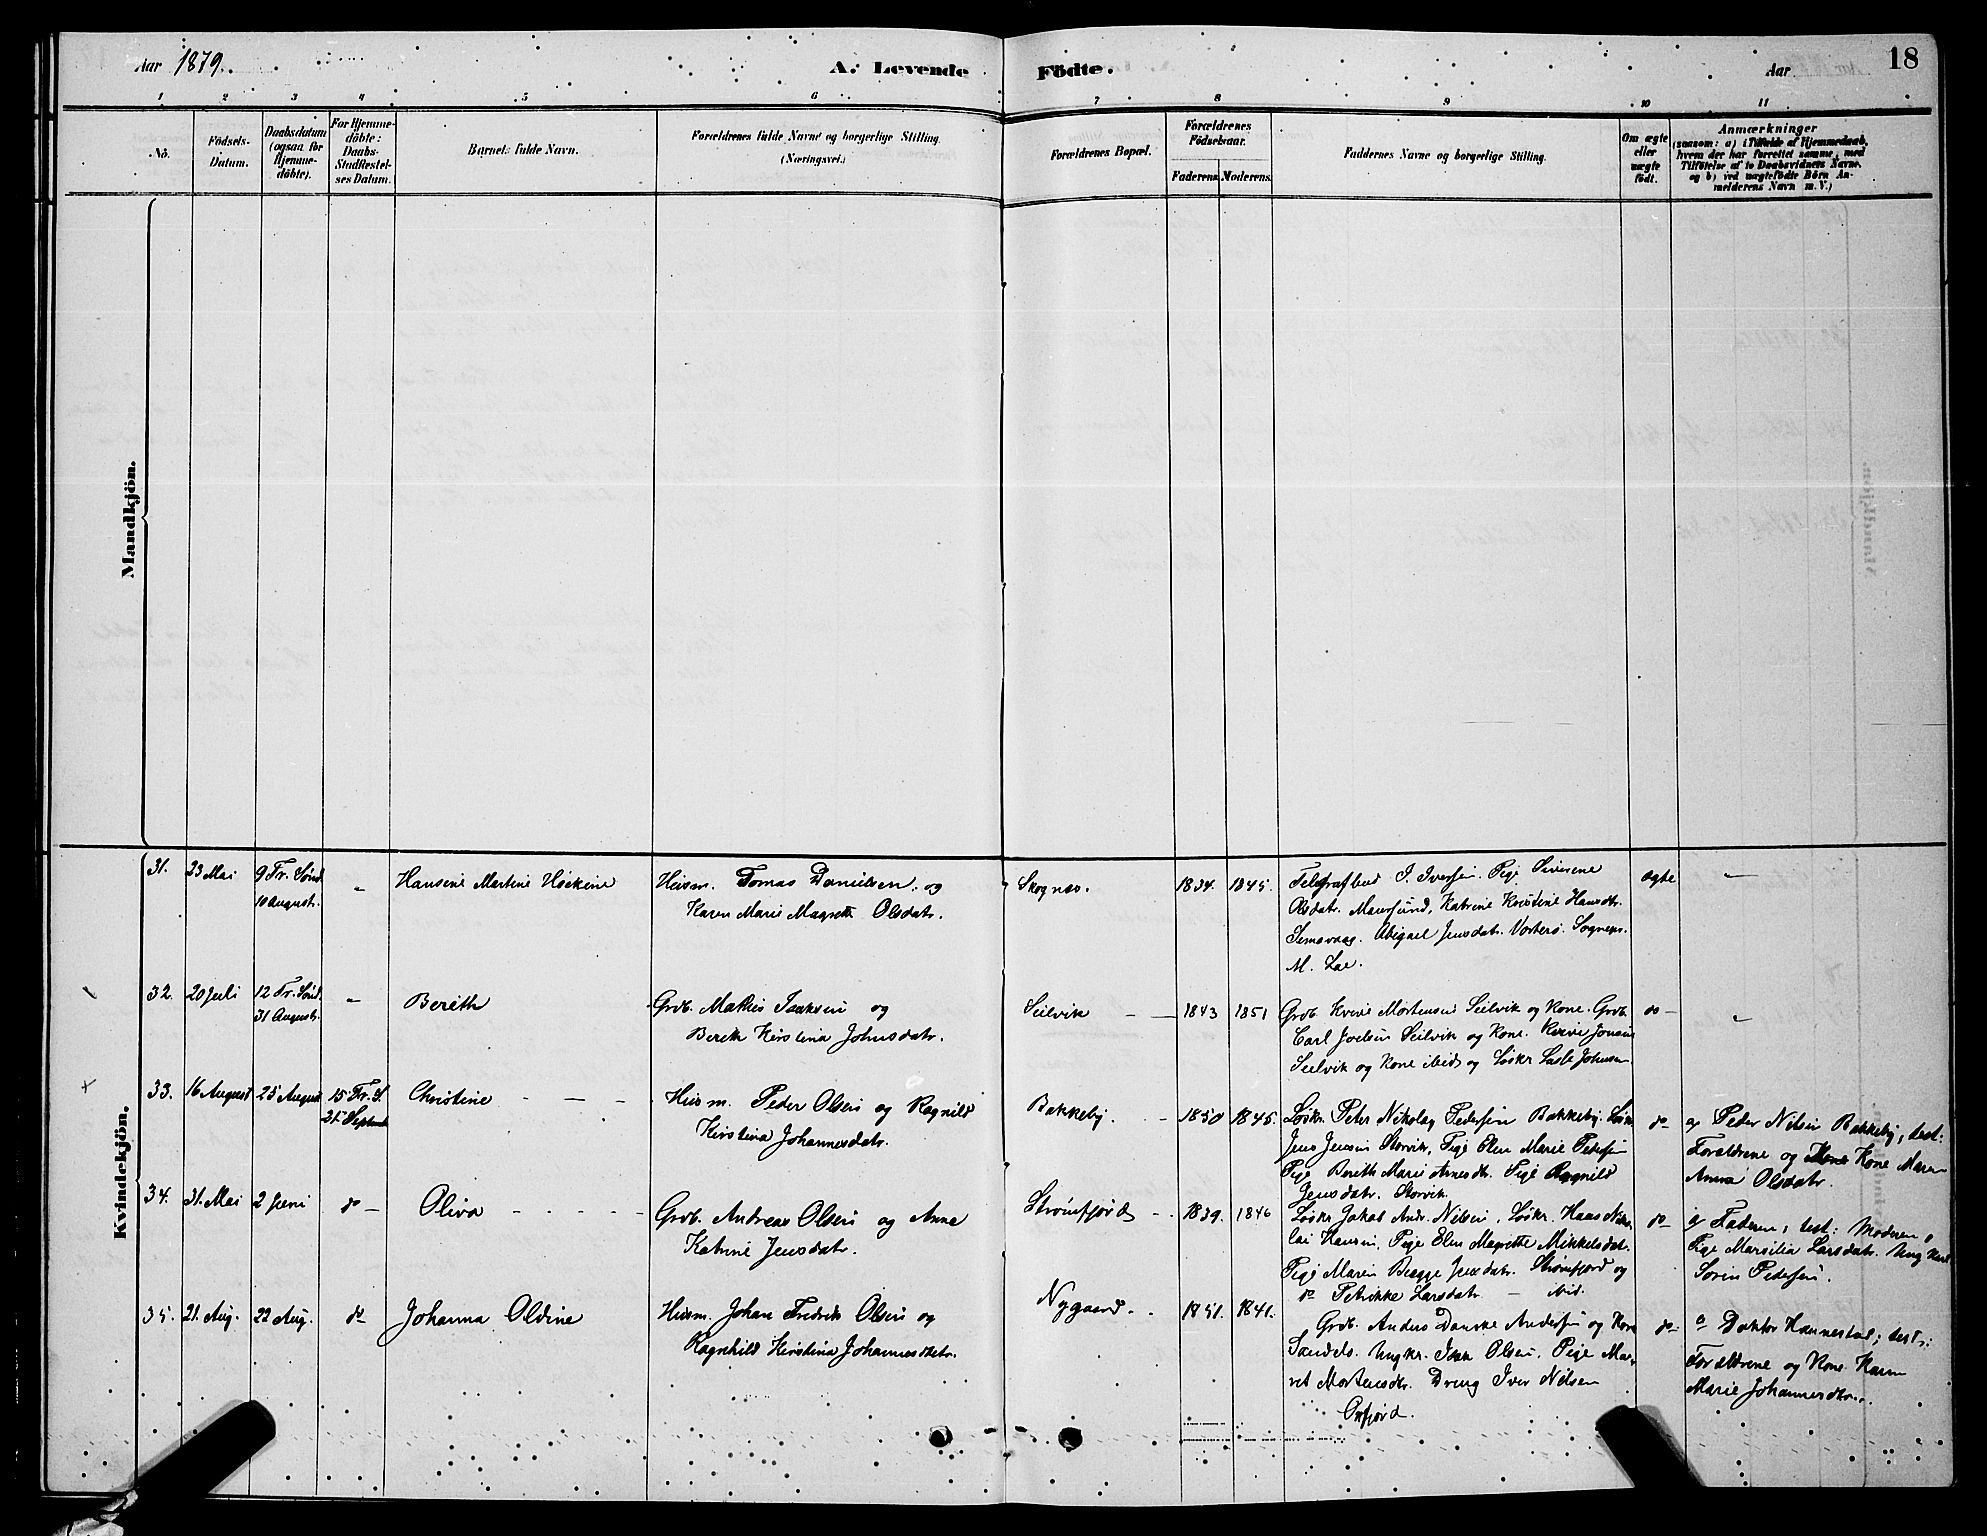 Aar 1879.
A. Levende Födte.
Aar
18
1 2 3 4 5 6 7 8 9 10 11
No.
Födsels-
Datum.
Daabsdatum
(ogsaa for
Hjemme-
döbte).
For Hjemme-
döbte:
Daabs-
Stadfæstel-
ses Datum.
Barnets fulde Navn.
Forældrenes fulde Navne og borgerlige Stilling.
(Næringsvei.)
Forældrenes Bopæl.
Forældrenes
Födselsaar.
Faderens. Moderens.
Faddernes Navne og borgerlige Stilling.
Om ægte
eller
uægte
födt.
Anmærkninger
(saasom: a) i Tilfælde af Hjemmedaab,
hvem der har forrettet samme, med
Tilföielse af to Daabsvidners Navne,
og b) ved uægtefödte Börn An-
melderens Navn m. V.)
Mandkjön.
Kvindekjön.
31. 23 Mai
9 Tr. Sönd.
10 August.
"
Hansine Martine Höckine
Huusm. Tomas Danielsen og
Karen Marie Magrette Olsdatr.
Skognes.
1834. 1845.
Telegrafbud J. Iversen. Pige Siverine
Olsdatr. Maursund, Katrine Kristine Hansdtr.
Abigael Jensdatr. Vorterö. Sognepr.
ægte
"
32. 20 Juli
12 Tr. Sönd.
31 August.
"
Berith
Grdb. Mathis Isaksen og
Bereth Kirstina Johnsdatr.
Seilvik
1843 1851
Grdb. Mortensen Seilvik og Kone. Grdb.
Carl Joelsen Seilvik og Kone.
Seilvik og Kone ibid og Löskr. Johnsen
do
"
33. 16 August 25 August
15 Tr. S.
Septemb
Christine
Huusm. Peder Olsen og Ragnild
Kirstina Johannesdatr.
Bakkeby.
1850 1845.
Löskr. Peter Nikolay Pedersen Bakkeby. Löskr.
Jens Jensen Storvik, Pige Elen Marie Pedersen
Pige Bereth Marie Arnesdtr. Pige Ragnild
Jensdatr. Storvik.
do
af Peder Nilsen Bakkeby, test:
Forældrene og Kone Maren
Anna Olsdatr.
34. 31. Mai 2 Juni do
Oliva
Grdb. Andreas Olsen og Anne
Katrine Jensdatr.
Strömfjord
1839. 1846
Löskr. Jakob Andr. Nilsen, Löskr. Haas Niko-
lai Hansen, Pige Elen Magrette Mikkelsdat.
Pige Maren Beagge Jensdatr. Strömfjord og
do Petrikke Larsdatr. — ibid.
do
af Faderen, test: Moderen,
Pige Marsilia Larsdatr. Ung Karl
Sören Pedersen.
35. 21. Aug. 22 Aug. do
Johanna Oldine
Huusm. Johan Fredrik Olsen og
Ragnhild Kirstina Johannesdatr.
Nygaard.
1851. 1841.
Grdb. Anders Danske Andersen og Kone
Ungkr. Isak Olsen, Pige Mar-
ret Mortensdtr. Dreng Iver Nilsen
Oxfjord.
do
af Doktor Hannestad; test:
Forældrene og Kone Karen
Marie Johannesdtr.